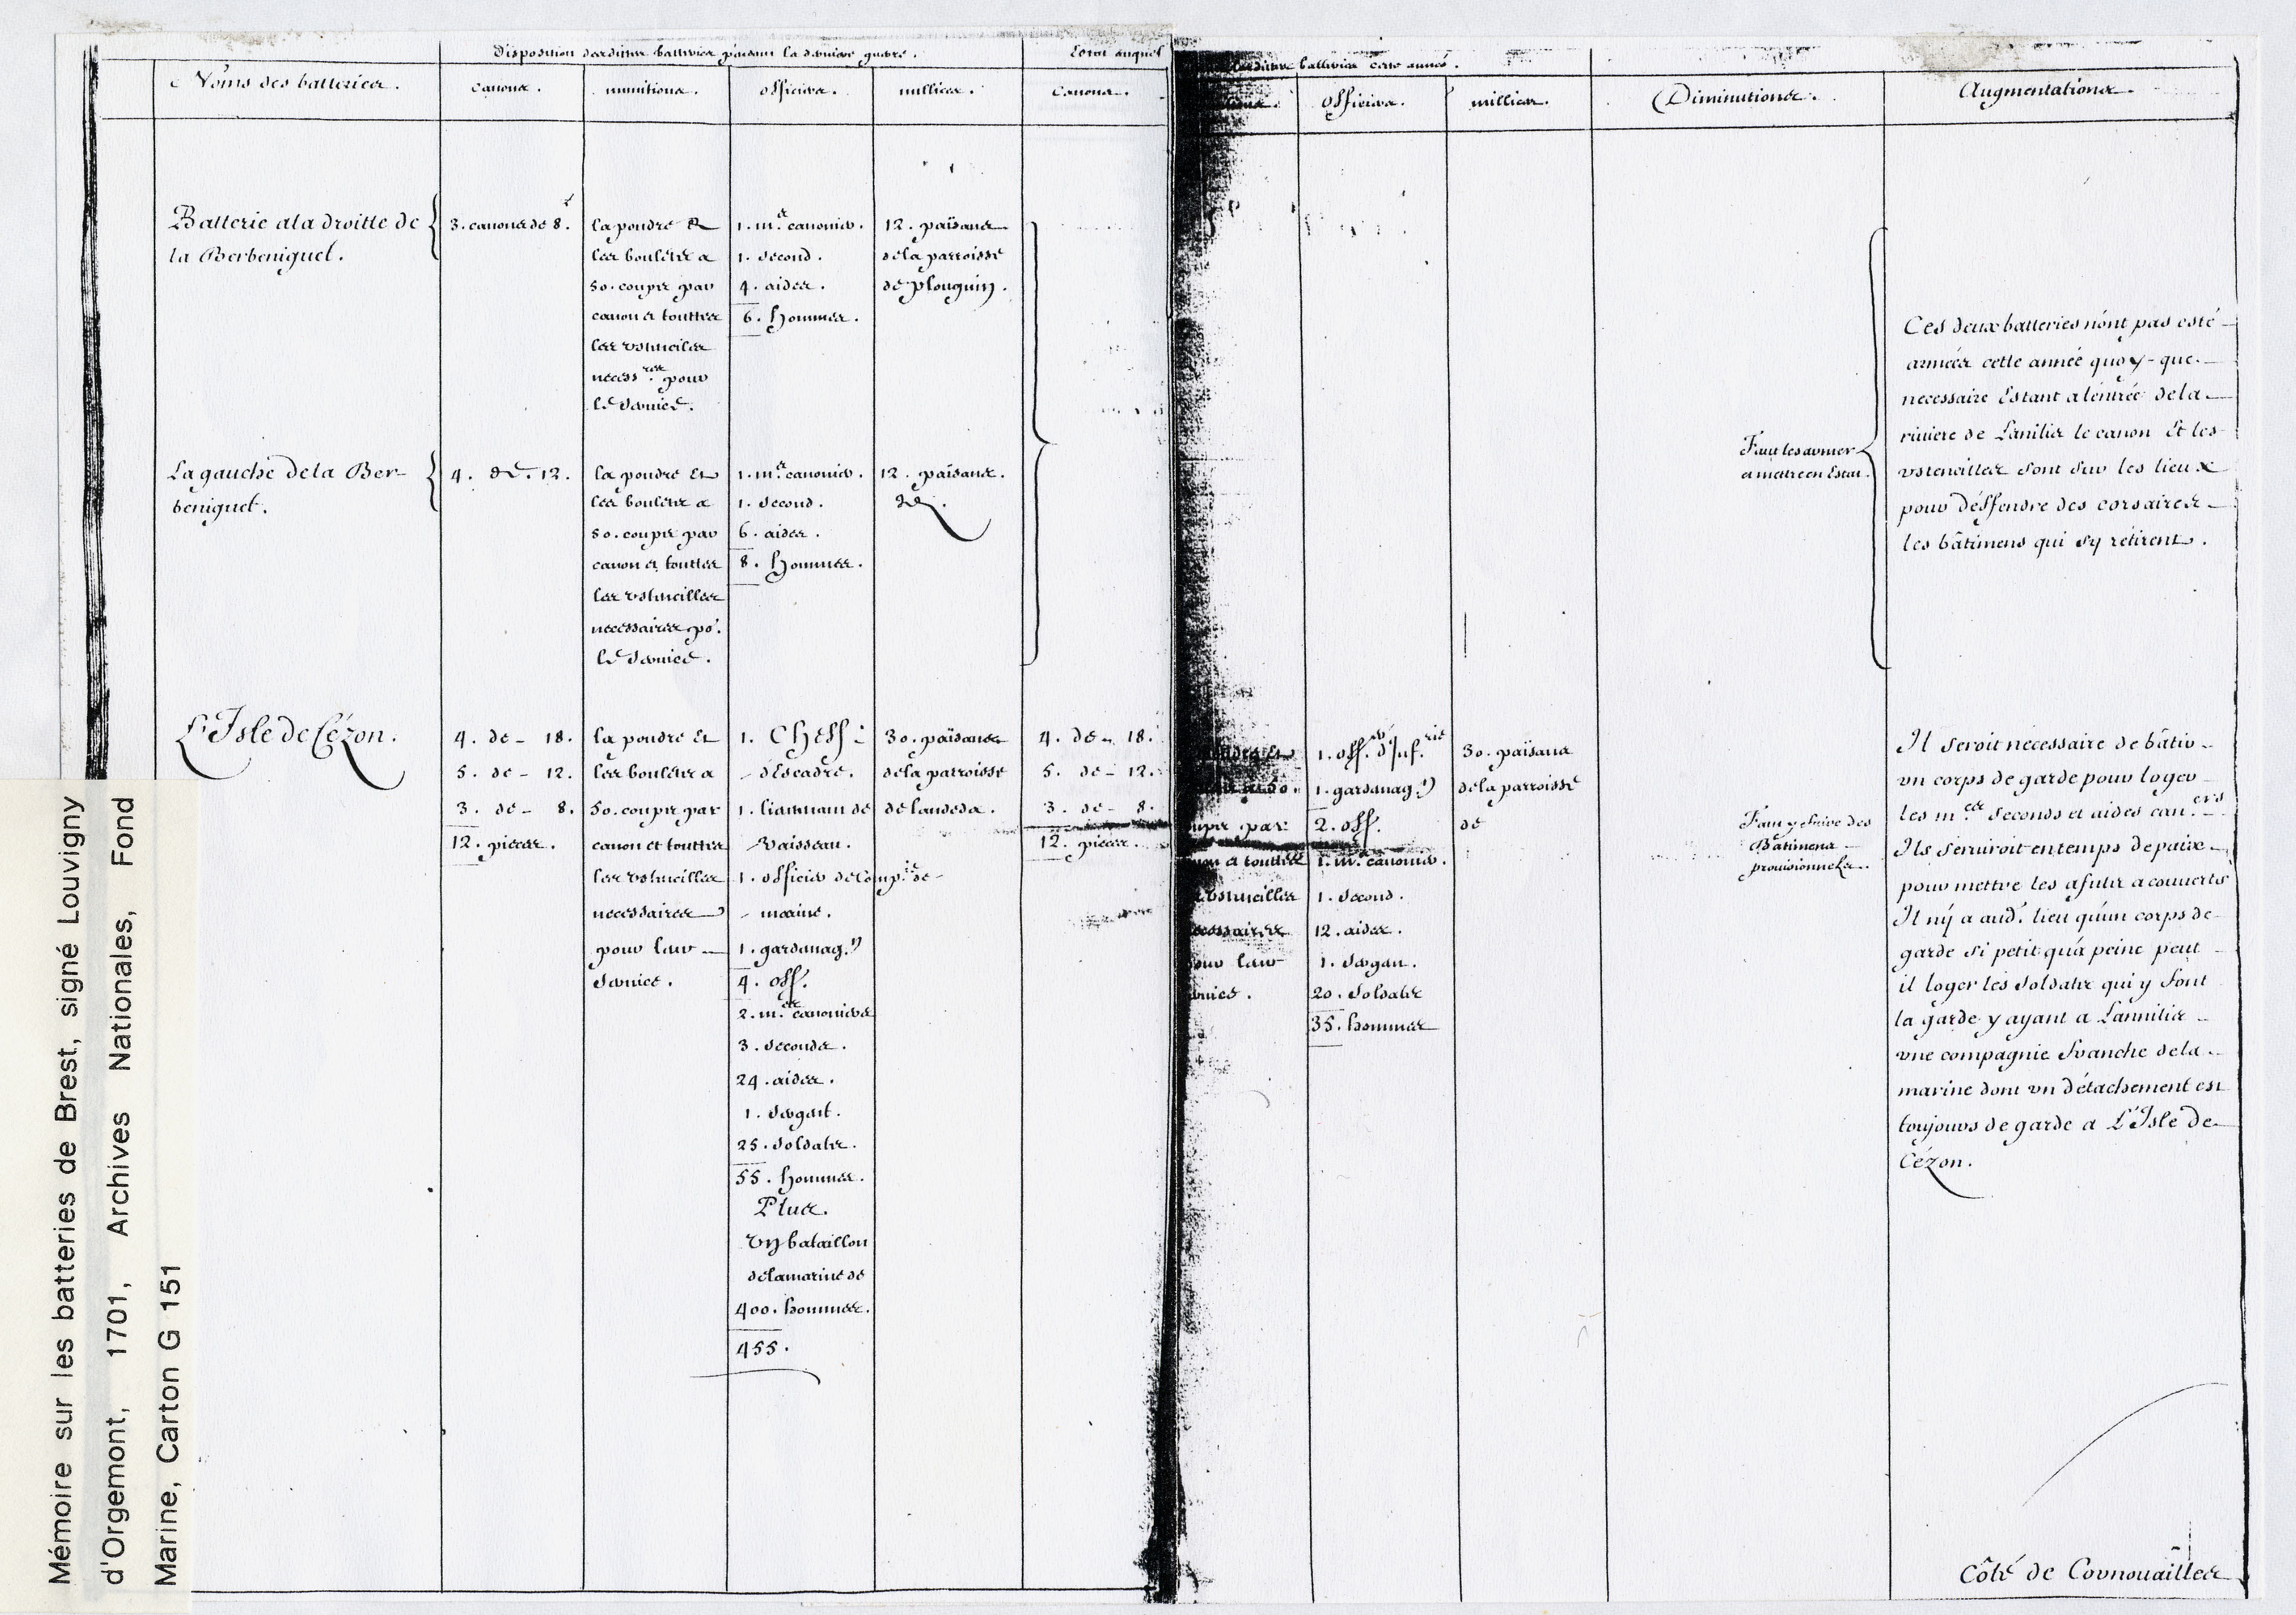 Disposition desdittes batteries pendant la derniere guerre.
Estat auquel
desdittes batteries cette année.
Noms des batteries.
canons.
munitions.
officiers.
millices.
canons.
officiers.
millices.
Diminutions.
Augmentations.
Batterie ala droitte de
la Berbeniguel.
3. canons de 8.
la poudre &
les boulets a
50. coups par
canon et touttes
les ustencilles
necess.res pour
le service.
1. m.e canonier.
1. second.
4. aides.
6. hommes.
12. païsans
dela parroisse
de plouguin.
La gauche dela Ber-
beniguet.
4. de. 12.
la poudre Et
les boulets a
50. coups par
canon et touttes
les ustencilles
necessaires po.r
le service.
1. m.e canonier.
1. second.
6. aides.
8. hommes.
12. païsans.
Faut les armer
et mettre en Estat.
Ces deux batteries n'ont pas esté
armées cette année quoy-que
necessaire Estant a l'entrée dela
riviere de Lanilis le canon Et les
ustencilles sont sur les lieux
pour deffendre des corsaires
les bâtimens qui s'y retirent.
L'Isle de Cézon.
4. de - 18.
5. de - 12.
3. de - 8.
12. pieces.
la poudre Et
les boulets a
50. coups par
canon et touttes
les ustencilles
necessaires
pour leur
service.
1. Cheff
d'Escadre.
1. lieutenant de
Vaisseau.
1. officier de comp.ie de
marine.
1. gardemag.n
4. off.
2. m.es canoniers
3. seconds.
24. aides.
1. sergent.
25. soldats.
55. hommes.
Plus.
un bataillon
dela marine de
400. hommes.
455.
30. païsans
dela parroisse
de landeda.
4. de - 18.
5. de - 12.
3. de - 8.
12. pieces.
coups par
canon et touttes
ustencilles
necessaires
pour leur
service.
1. off.er d'Inf.rie
1. gardemag.n
2. off.
1. m.e canonier.
1. second.
12. aides.
1. sergent.
20. soldats
35. hommes
30. païsans
dela parroisse
de
Faut y faire des
Bâtimens
provisionnels.
Il seroit necessaire de bâtir
un corps de garde pour loger
les m.es seconds et aides can.ers
Ils serviroit en temps de paix
pour mettre les afuts a couverts
Il n'y a aud.t lieu qu'un corps de
garde si petit qu'a peine peut
il loger les soldats qui y sont
la garde y ayant a Lannilis
une compagnie franche dela
marine dont un détachement est
toujours de garde a L'Isle de
Cézon.
Côté de Cornouailles
Mémoire sur les batteries de Brest, signé Louvigny
d'Orgemont, 1701, Archives Nationales, Fond
Marine, Carton G 151